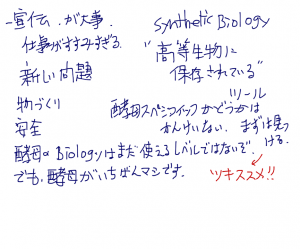 -宣伝.が大事.
仕事がすすみすぎる.
新しい問題
物づくり
安全
Synthetic Biology
"高等生物に
保存されている"
ツール
酵母スペシフィックかどうかは
かんけいない. まずは見つ
ける.
酵母の Biologyはまだ使えるレベルではないぞ.
でも.酵母がいちばんマシです.
ツキススメ!!